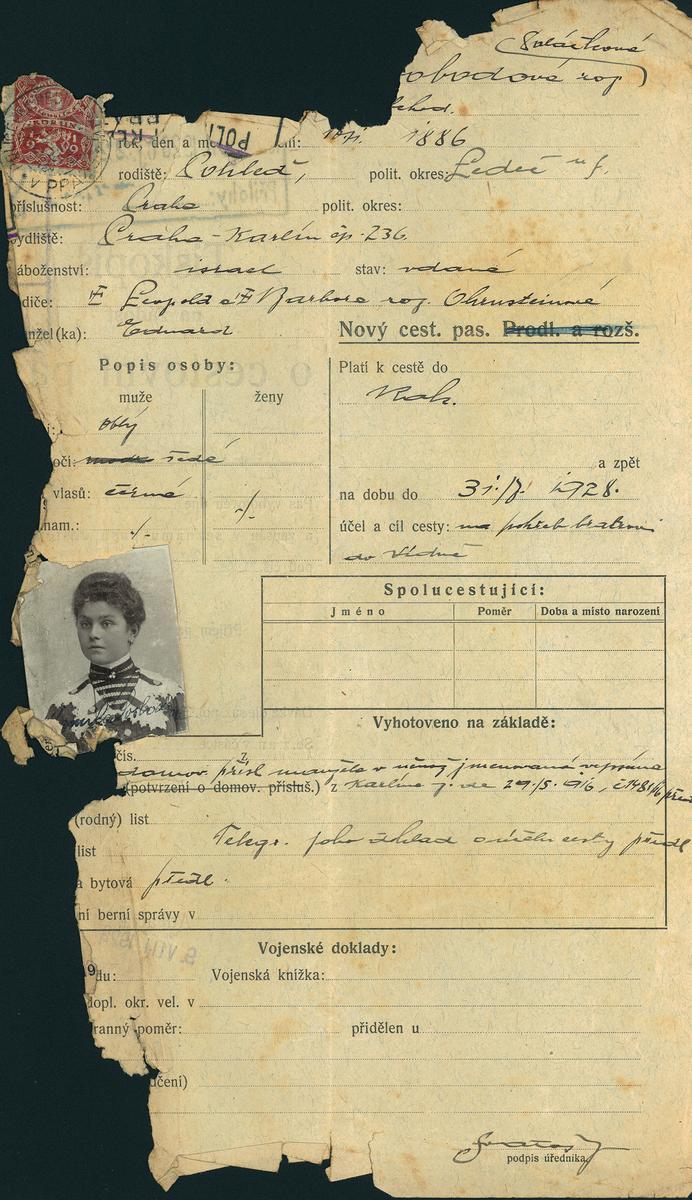 obodové roz
POLI
rok, den a 1886
rodiště: Pohleď, polit. okres: Ledeč n/S.
příslušnost: Praha polit. okres:
bydliště: Praha-Karlín čp. 236
náboženství: israel stav: vdaná
diče: Leopold a Barbora roz. Ohrnsteinové
anžel(ka): Eduard
Nový cest. pas. Prodl. a rozš.
Popis osoby:
muže ženy
oblý
oči: šedé
vlasů: černé
nam.: ./. ./.
Platí k cestě do
Rak.
a zpět
na dobu do 1928.
účel a cíl cesty: na pohřeb bratrovi
do Vídně
Spolucestující:
Jméno Poměr Doba a místo narození
Vyhotoveno na základě:
čís. z
domov. přísl. manžela v němž jmenovaná vepsána
(potvrzení o domov. přísluš.) z Karlína z. de 29./5. 916, č.
(rodný) list
list Telegr. jako doklad o účelu cesty předl
a bytová předl.
ní berní správy v
Vojenské doklady:
du: Vojenská knížka:
dopl. okr. vel. v
ranný poměr: přidělen u
čení)
podpis úředníka